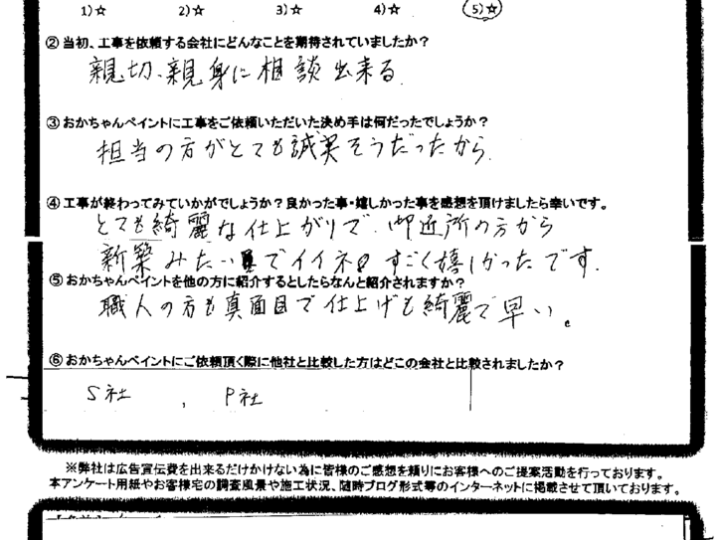 1)☆ 2)☆ 3)☆ 4)☆ 5)☆
②当初、工事を依頼する会社にどんなことを期待されていましたか？
親切、親身に相談出来る
③おかちゃんペイントに工事をご依頼いただいた決め手は何だったでしょうか？
担当の方がとても誠実そうだったから.
④工事が終わってみていかがでしょうか？良かった事・嬉しかった事を感想を頂けましたら幸いです。
とても綺麗な仕上がりで、御近所の方から
新築みたいでイイネ すごく嬉しかったです.
⑤おかちゃんペイントを他の方に紹介するとしたらなんと紹介されますか？
職人の方も真面目で仕上げも綺麗で早い。
⑥おかちゃんペイントにご依頼頂く際に他社と比較した方はどこの会社と比較されましたか？
S社 , P社
※弊社は広告宣伝費を出来るだけかけない為に皆様のご感想を頼りにお客様へのご提案活動を行っております。
本アンケート用紙やお客様宅の調査風景や施工状況、随時ブログ形式等のインターネットに掲載させて頂いております。